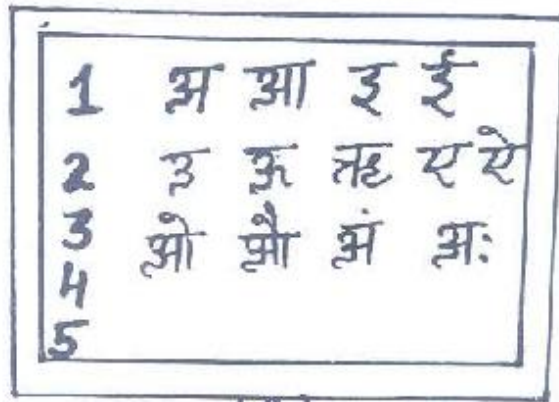 1 अ आ इ ई
2 उ ऊ ऋ ए ऐ
3 ओ औ अं अः
4
5